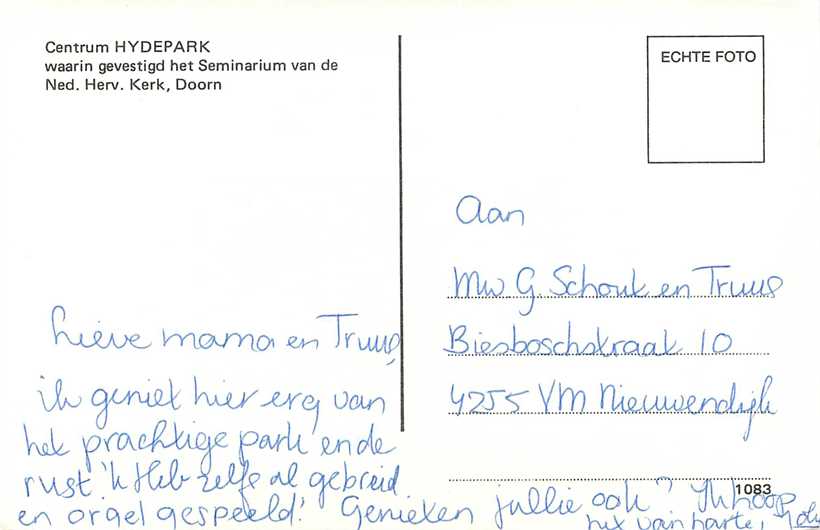 Centrum HYDEPARK
waarin gevestigd het Seminarium van de
Ned. Herv. Kerk, Doorn
ECHTE FOTO
Aan
Mw G. Schouk en Truus
Biesboschstraat 10
4255 VM Nieuwendijk
1083
Lieve mama en Truus,
ik geniet hier erg van
het prachtige park en de
rust 'k Heb zelfs al gebreid
en orgel gespeeld! Genieten jullie ook? Ik hoop
het van harte!